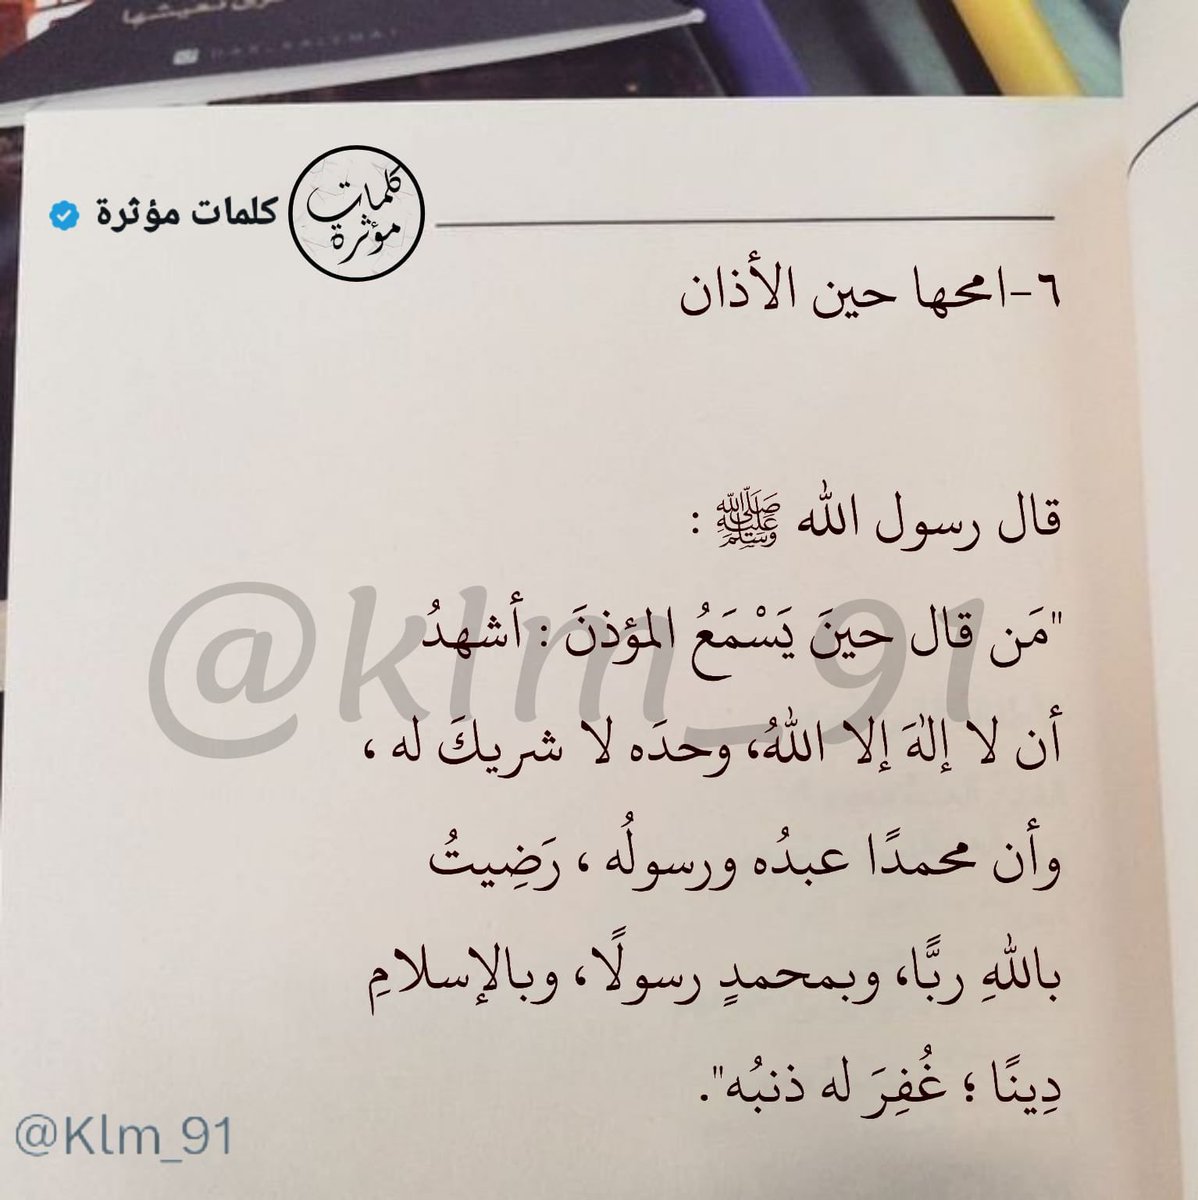 DAR KALEMAT
كلمات مؤثرة
كلمات مؤثرة
٦-امحها حين الأذان
قال رسول الله ﷺ :
"مَن قال حينَ يَسْمَعُ المؤذنَ : أشهدُ
أن لا إلهَ إلا اللهُ، وحدَه لا شريكَ له ،
وأن محمدًا عبدُه ورسولُه ، رَضِيتُ
باللهِ ربًّا، وبمحمدٍ رسولًا، وبالإسلامِ
دِينًا ؛ غُفِرَ له ذنبُه".
@klm_91
@Klm_91